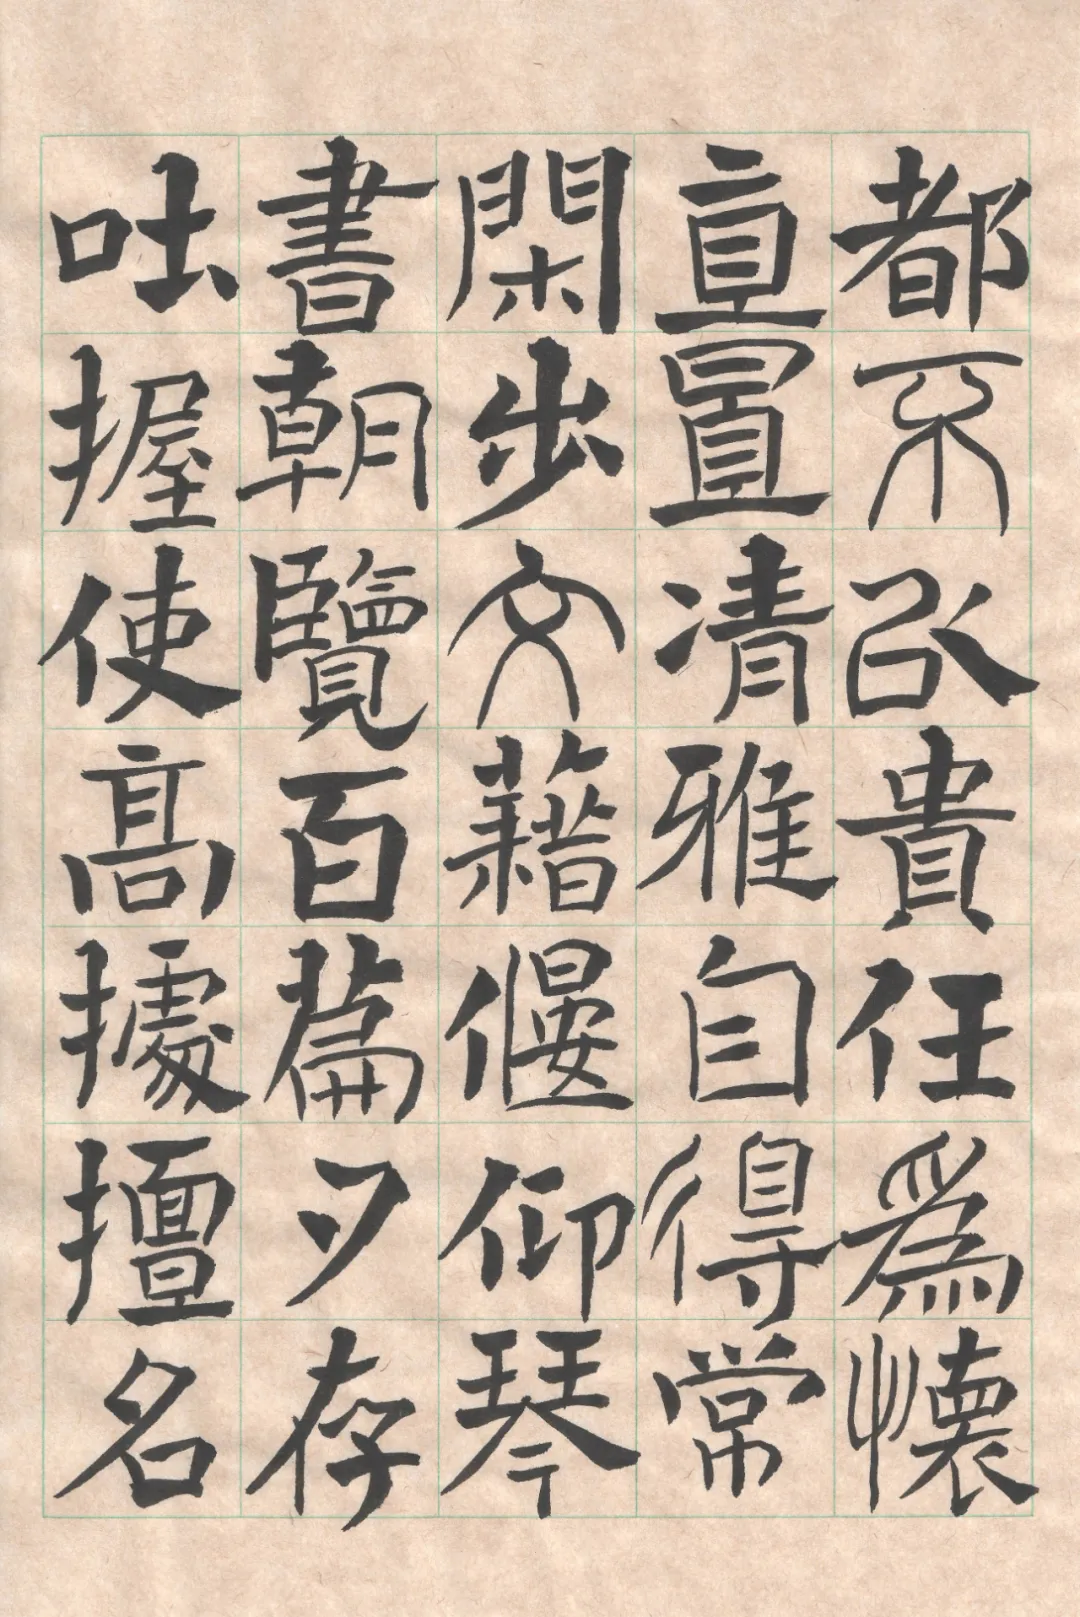 都不以貴任爲懷
直置清雅自得常
閑步文藉偃仰琴
書朝覽百篇夕存
吐握使高據擅名